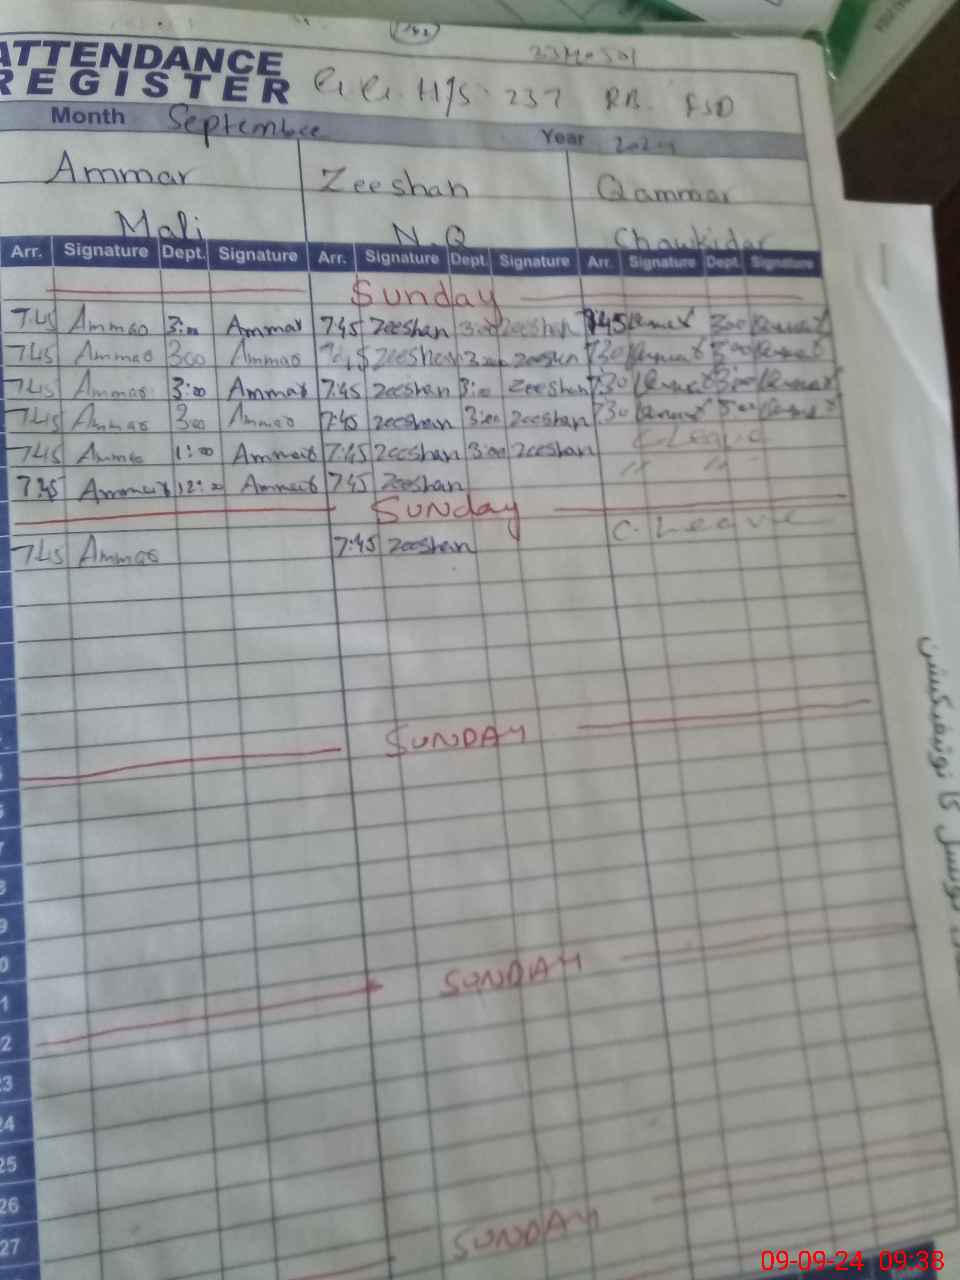 ATTENDANCE
REGISTER G.G.H/S. 237 RB. FSD
Month September Year 2024
Ammar Zeeshan Qammar
Mali N.Q Chawkidar
Arr. Signature Dept. Signature Arr. Signature Dept. Signature Arr. Signature Dept. Signature
Sunday
7.45 Ammar 3:00 Ammar 7:45 Zeeshan 3:00 Zeeshan 7:45 3:00
7.45 Ammar 3:00 Ammar 7:45 Zeeshan 3:00 Zeeshan 7:30 5:00
7.45 Ammar 3:00 Ammar 7:45 Zeeshan 3:00 Zeeshan 7:30 3:00
7.45 Ammar 300 Ammar 7:45 Zeeshan 3:00 Zeeshan 7:30 5:00
7.45 Ammar 1:00 Ammar 7:45 Zeeshan 3:00 Zeeshan C. Leave
7:45 Ammar 12:00 Ammar 7:45 Zeeshan 〃 〃
Sunday
7.45 Ammar 7:45 Zeeshan C. Leave
SUNDAY
SUNDAY
23
24
25
26
27
SUNDAY
کا نوٹیفکیشن
09-09-24 09:38